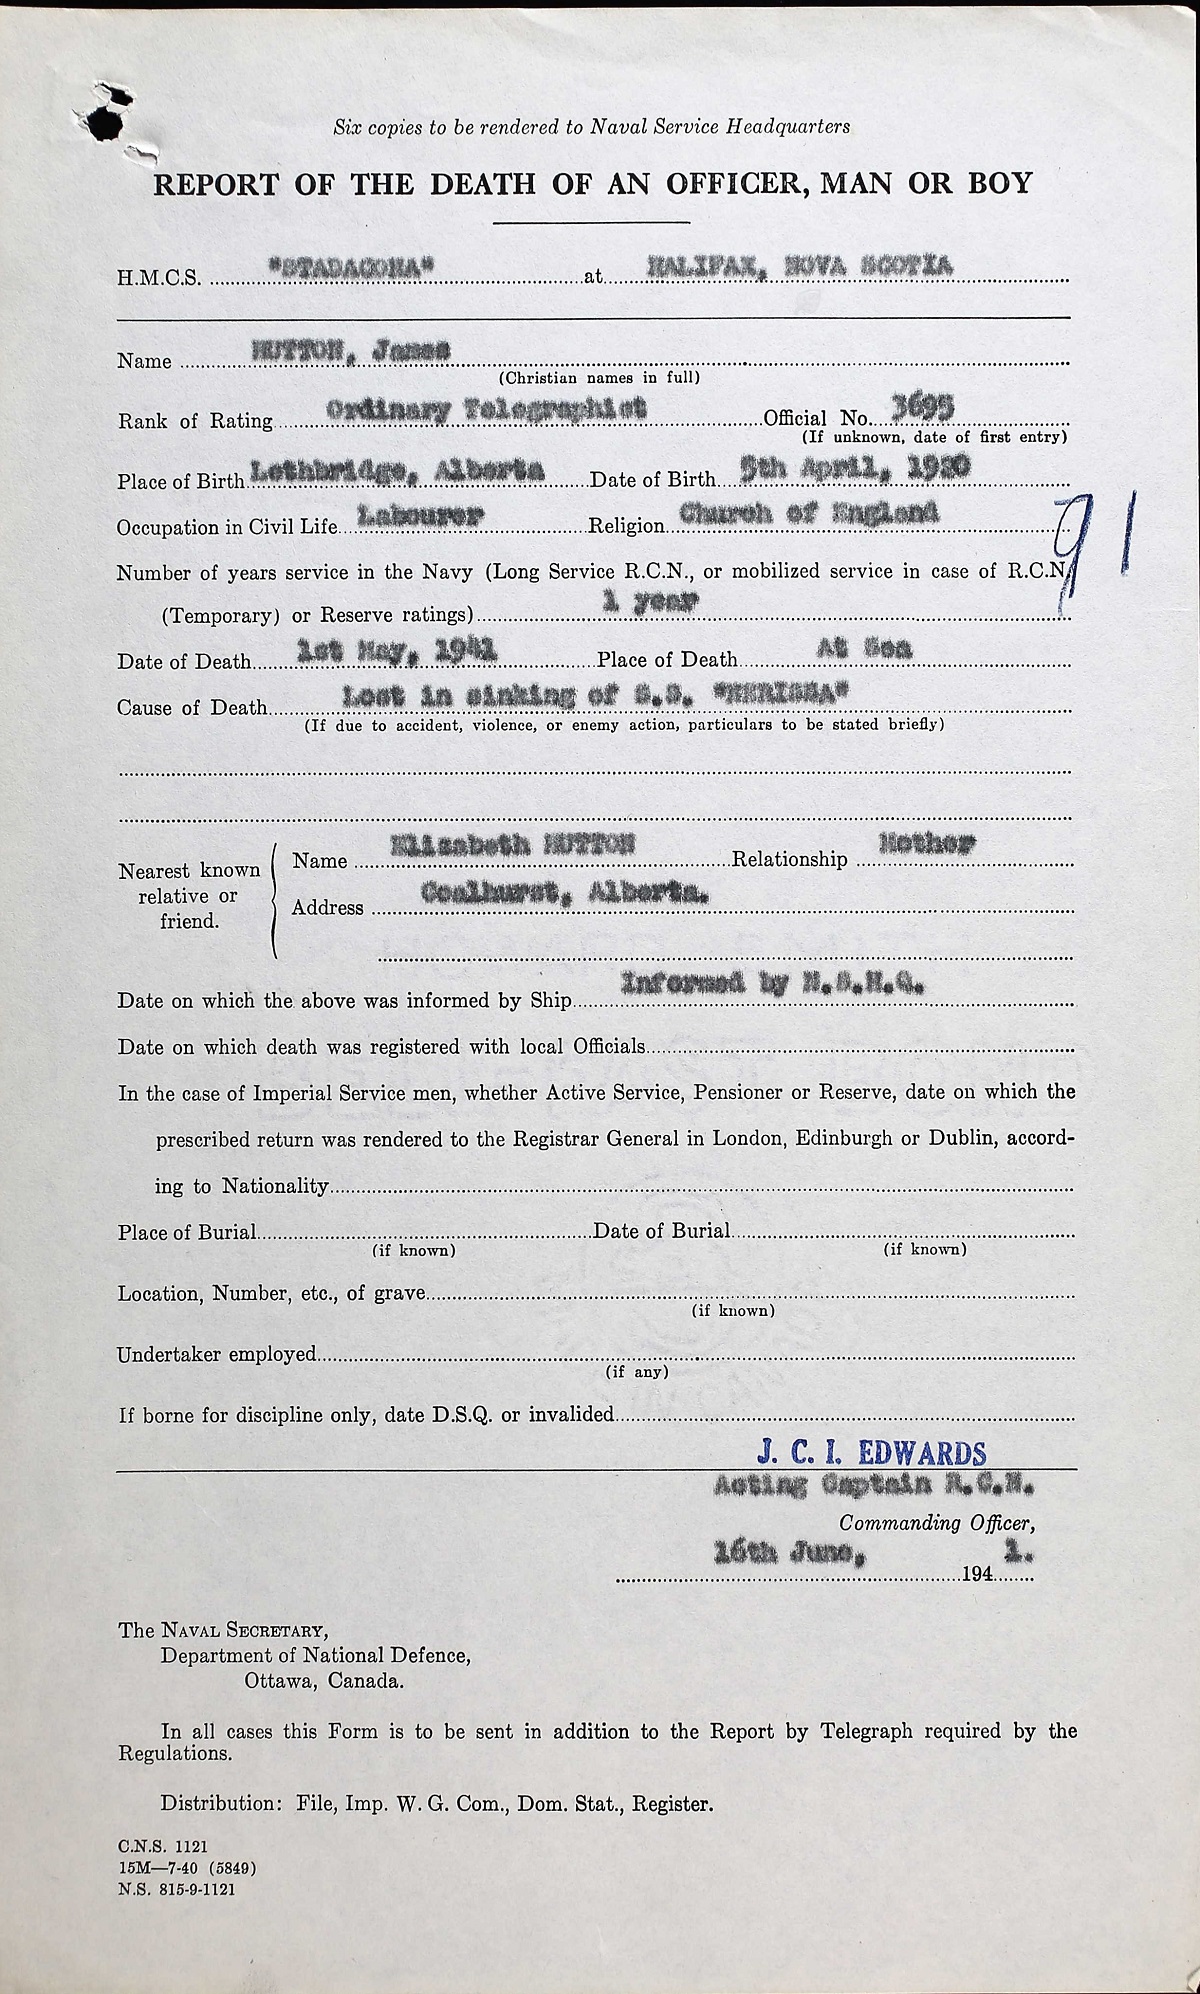 Six copies to be rendered to Naval Service Headquarters
REPORT OF THE DEATH OF AN OFFICER, MAN OR BOY
H.M.C.S. "STADACONA" at HALIFAX, NOVA SCOTIA
Name HUTTON, James
(Christian names in full)
Rank of Rating Ordinary Telegraphist Official No. 3695
(If unknown, date of first entry)
Place of Birth Lethbridge, Alberta Date of Birth 9th April, 1920
Occupation in Civil Life Labourer Religion Church of England
91
Number of years service in the Navy (Long Service R.C.N., or mobilized service in case of R.C.N.
(Temporary) or Reserve ratings) 1 year
Date of Death 1st May, 1941 Place of Death At Sea
Cause of Death Lost in sinking of S.S. "NERISSA"
(If due to accident, violence, or enemy action, particulars to be stated briefly)
Nearest known relative or friend. Name Elizabeth HUTTON Relationship Mother
Address Coalhurst, Alberta.
Date on which the above was informed by Ship Informed by N.S.H.Q.
Date on which death was registered with local Officials
In the case of Imperial Service men, whether Active Service, Pensioner or Reserve, date on which the
prescribed return was rendered to the Registrar General in London, Edinburgh or Dublin, accord-
ing to Nationality
Place of Burial Date of Burial
(if known) (if known)
Location, Number, etc., of grave
(if known)
Undertaker employed
(if any)
If borne for discipline only, date D.S.Q. or invalided
J. C. I. EDWARDS
Acting Captain R.C.N.
Commanding Officer,
16th June, 1941.
The NAVAL SECRETARY,
Department of National Defence,
Ottawa, Canada.
In all cases this Form is to be sent in addition to the Report by Telegraph required by the
Regulations.
Distribution: File, Imp. W. G. Com., Dom. Stat., Register.
C.N.S. 1121
15M—7-40 (5849)
N.S. 815-9-1121